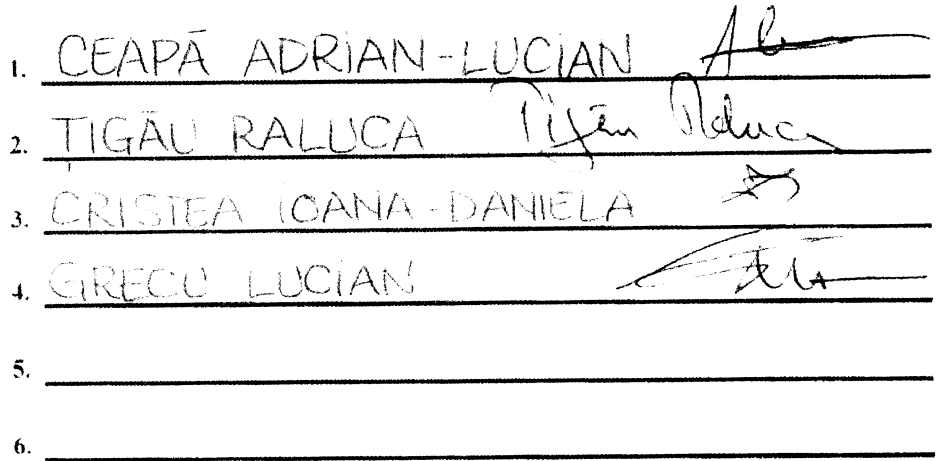 1. CEAPĂ ADRIAN-LUCIAN
2. ȚIGĂU RALUCA Țigău Raluca
3. CRISTEA IOANA-DANIELA
4. GRECU LUCIAN
5.
6.